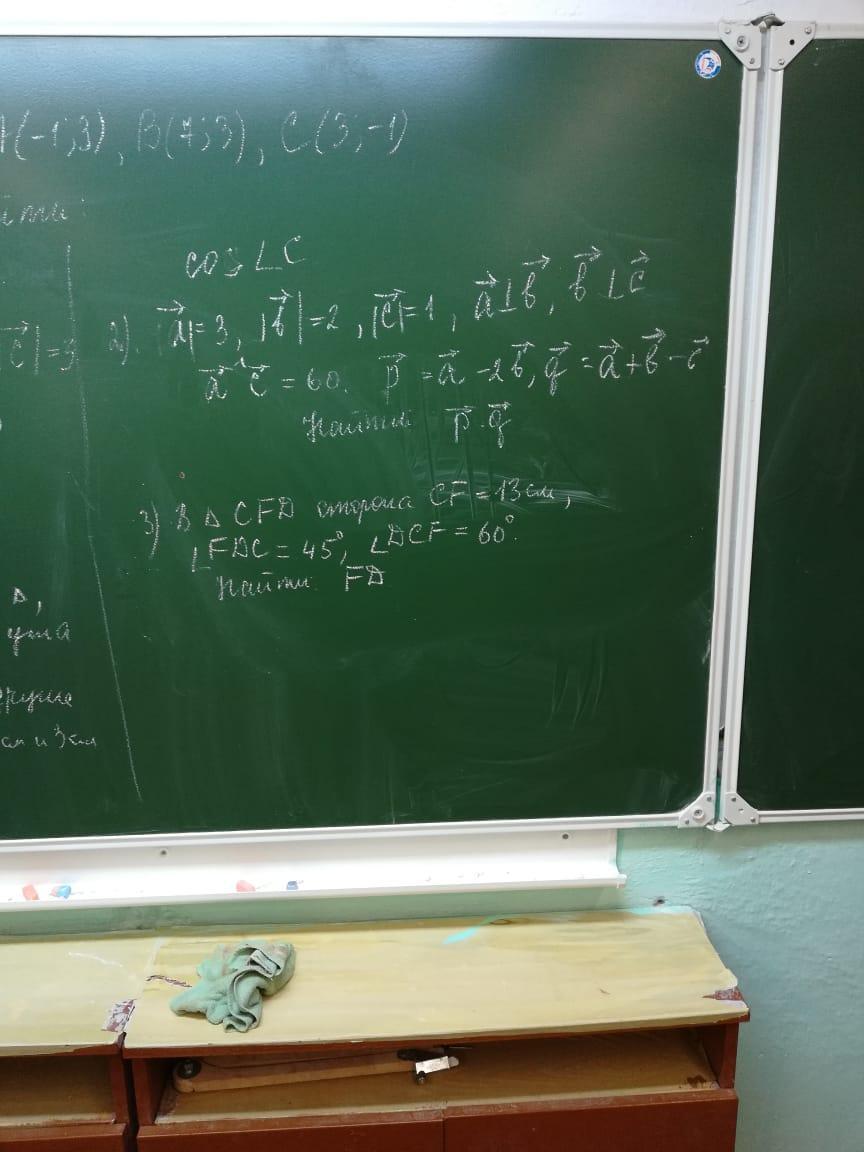 A(-1;3), B(7;3), C(3;-1)
йти:
cos∠C
|c⃗|=3
2). |a⃗|=3, |b⃗|=2, |c⃗|=1, a⃗⊥b⃗, b⃗⊥c⃗
a⃗^c⃗ = 60. p⃗ = a⃗ - 2b⃗, q⃗ = a⃗+b⃗-c⃗
Найти p⃗·q⃗
3) В Δ CFD сторона CF = 13 см,
∠FDC = 45°, ∠DCF = 60°.
Найти: FD
Δ,
угла
см и 3см